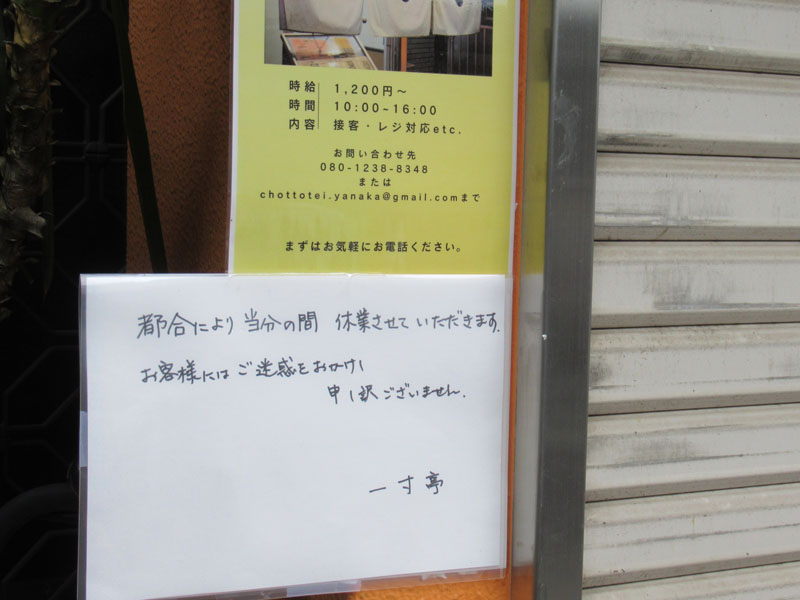 時給 1,200円~
時間 10:00~16:00
内容 接客・レジ対応etc.
お問い合わせ先
080-1238-8348
または
chottotei.yanaka@gmail.comまで
まずはお気軽にお電話ください。
都合により 当分の間 休業させていただきます.
お客様にはご迷惑をおかけし
申し訳ございません.
一寸亭